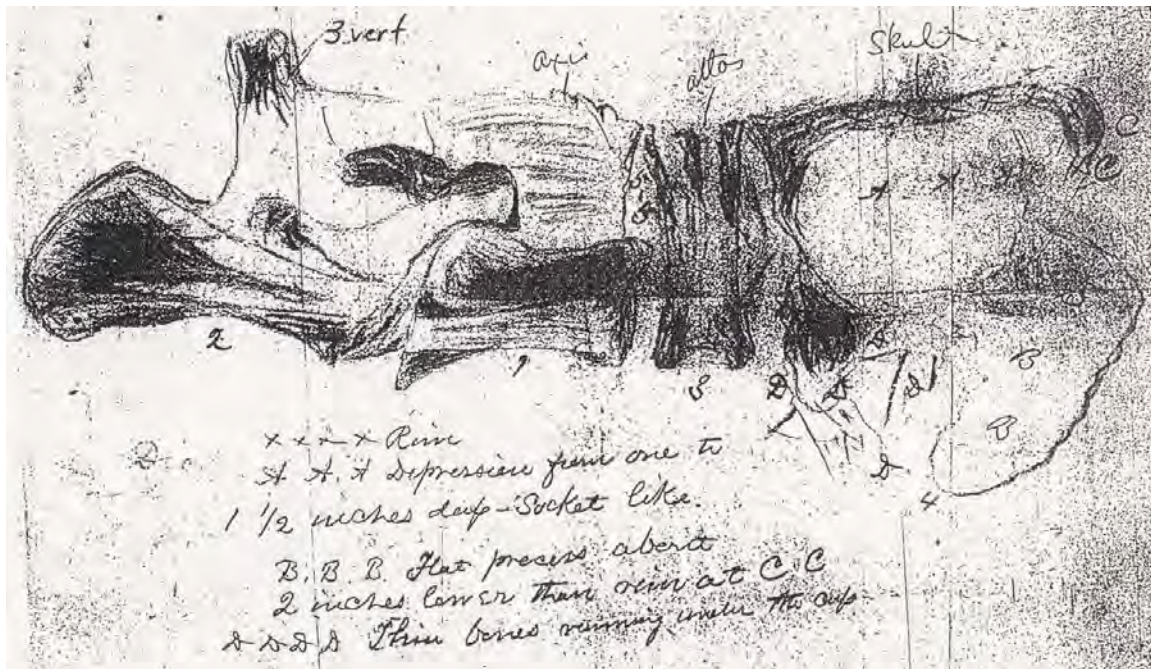 3. vert
axis
atlas
skull
C
C
2
1
3
B
B
D
D
D
D
4
x x x x Rim
A. A. A Depression from one to
1 1/2 inches deep - Socket like.
B. B. B. Flat process about
2 inches lower than rim at C C
D D D D Thin bones running under the cup